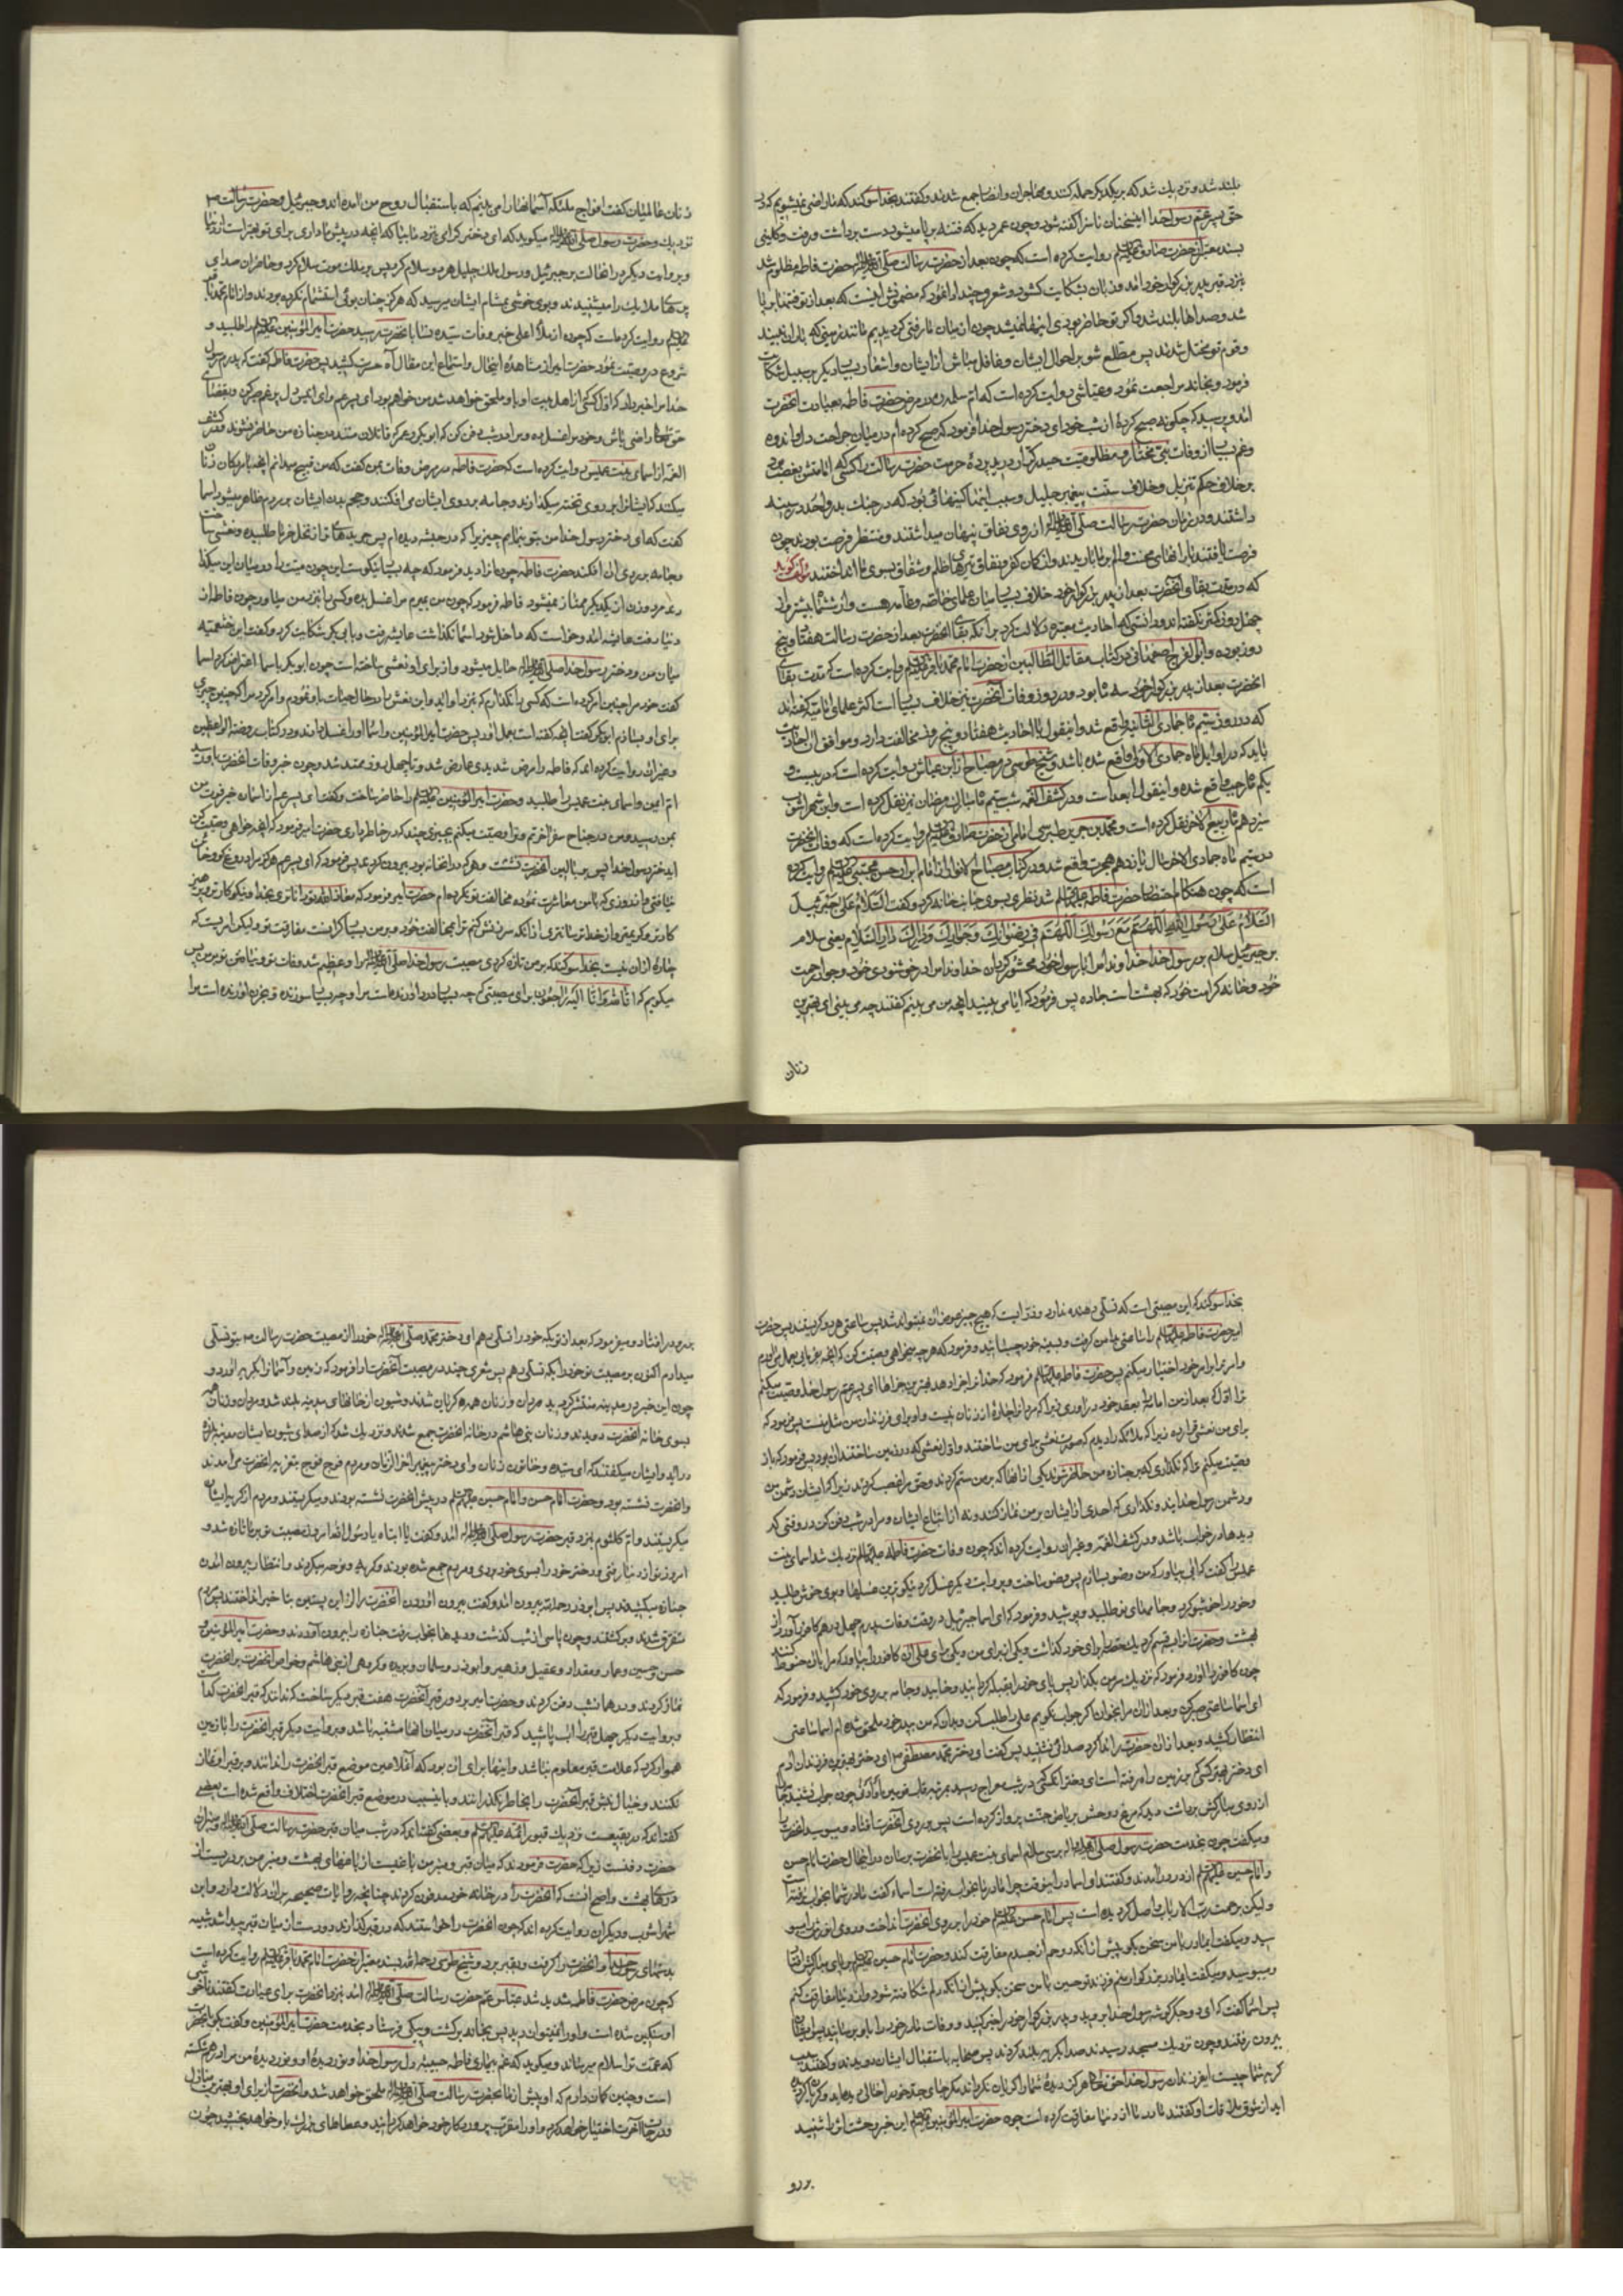 بلند شد و نزدیك شد که بر یکدیگر حمله کنند و مهاجران و انصار جمع شدند و گفتند بخدا سوگند که ما راضی نمیشویم که در
حق پسر عم رسول خدا این سخنان ناسزا گفته شود و چون عمر دید که فتنه بر پا میشود دست برداشت و رفت و کلینی
بسند معتبر از حضرت صادق علیه السلام روایت کرده است که چون بعد از حضرت رسالت صلی الله علیه و آله حضرت فاطمه مظلوم شد
نزد قبر پدر بزرگوار خود آمد و زبان بشکایت گشود و شعر چند ادا نمود که مضمونش اینست که بعد از تو فتنها بر پا
شد و صداها بلند شد و اگر تو حاضر بودی اینها نمیشد چون از میان ما رفتی گردیدیم مانند زمینی که باران نبیند
و قوم تو مختل شدند پس مطلع شو بر احوال ایشان و غافل مباش از ایشان و اشعار بسیار دیگر بر سبیل شکایت
فرمود و بخانه مراجعت نمود و عیاشی روایت کرده است که ام سلمه در مرض حضرت فاطمه بعیادت آنحضرت
آمد و پرسید که چگونه صبح کردۀ از شب خود ای دختر رسول خدا فرمود که صبح کرده ام در میان جراحت دل و اندوه
و غم بسیار از وفات نبی مختار و مظلومیت حیدر کرار دریده پردۀ حرمت حضرت رسالت را کسی که امامتش بغصب بود
بر خلاف حکم تنزیل و خلاف سنت پیغمبر جلیل و سبب اینها کینهائی بود که در جنك بدر و احد در سینه
داشتند و در زمان حضرت رسالت صلی الله علیه و آله از روی نفاق پنهان میداشتند و منتظر فرصت بودند چون
فرصت یافتند بارانهای محنت و الم بر ما باریدند و از کمان کفر و نفاق تیرهای ظلم و شقاق بسوی ما انداختند مؤلف گوید
که در مدت بقای آنحضرت بعد از پدر بزرگوار خود خلاف بسیار میان علمای خاصه و عامه هست و از شش ماه بیشتر و از
چهل روز کمتر نگفته اند و دانستی که احادیث معتبره دلالت کرد بر آنکه بقای آنحضرت بعد از حضرت رسالت هفتاد و پنج
روز بوده و ابو الفرج اصفهانی در کتاب مقاتل الطالبیین از حضرت امام محمد باقر علیه السلام روایت کرده است که مدت بقای
آنحضرت بعد از پدر بزرگوار خود سه ماه بود و در روز وفات آنحضرت نیز خلاف بسیار است اکثر علمای امامیه گفته اند
که در روز سیم ماه جمادی الثانیه واقع شد و اینقول با احادیث هفتاد و پنج روز مخالفت دارد و موافق آن احادیث
باید که در اوایل ماه جمادی الاول واقع شده باشد و شیخ طوسی در مصباح از ابن عیاش روایت کرده است که در بیست و
یکم ماه رجب واقع شده و اینقول ابعد است و در کشف الغمه شب سیم ماه مبارك رمضان نیز نقل کرده است و ابن شهر آشوب
سیزدهم ماه ربیع الآخر نقل کرده است و محمد بن جریر طبری امامی از حضرت صادق علیه السلام روایت کرده است که وفات آنحضرت
در سیم ماه جمادی الآخر سال یازدهم هجرت واقع شد و در کتاب مصباح الانوار از امام حسن مجتبی علیه السلام روایت کرده
است که چون هنگام احتضار حضرت فاطمه علیها السلام شد نظری بسوی جانب خانه کرد و گفت السلام علی جبرئیل
السلام علی رسول الله اللهم مع رسولك اللهم فی رضوانك و جوارك و دارك دار السلام یعنی سلام
بر جبرئیل سلام بر رسول خدا خداوندا مرا با رسول خود محشور گردان خداوندا مرا در خوشنودی خود و جوار رحمت
خود و خانه کرامت خود که بهشت است جا ده پس فرمود که آیا می بینید آنچه من می بینم گفتند چه می بینی ای بهترین
زنان
زنان عالمیان گفت افواج ملئکه آسمانها را می بینم که باستقبال روح من آمده اند و جبرئیل و حضرت رسالت
نزدیك و حضرت رسول صلی الله علیه و آله میگوید که ای دختر گرامی بزودی نزد ما بیا که آنچه در پیش ما داری برای تو بهتر است از دنیا
و بروایت دیگر در آنحالت بر جبرئیل و رسول ملك جلیل هر دو سلام کرد پس بر ملك موت سلام کرد و حاضران صدای
پرهای ملایك را میشنیدند و بوی خوشی بمشام ایشان میرسید که هرگز چنان بوئی استشمام نکرده بودند و از امام محمد باقر
علیه السلام روایت کرده است که چون از ملأ اعلی خبر وفات سیده نسا بآنحضرت رسید حضرت امیر المؤمنین علیه السلام را طلبید و
شروع در وصیت نمود حضرت امیر از مشاهدۀ اینحال و استماع این مقال آه حسرت کشید پس حضرت فاطمه گفت که پدرم رسول
خدا مرا خبر داد که اول کسی از اهل بیت او باو ملحق خواهد شد من خواهم بود ای پسر عم برای این دل پر غم صبر کن و بقضای
حق تعالی راضی باش و خود مرا غسل ده و مرا در شب دفن کن که ابو بکر و عمر که قاتلان منند بر جنازه من حاضر نشوند و در کشف
الغمه از اسمای بنت عمیس روایت کرده است که حضرت فاطمه در مرض وفات بمن گفت که من قبیح میدانم آنچه بمردگان زنان
میکنند که ایشانرا بر روی تخته میگذارند و جامه بر روی ایشان می افکنند و حجم بدن ایشان بر مردم ظاهر میشود اسما
گفت که ای دختر رسول خدا من بتو بنمایم چیزیرا که در حبشه دیده ام پس جریدهای تر از نخل خرما طلبید و نعشی ساخت
و جامه بر روی آن افکند حضرت فاطمه چون آنرا دید فرمود که چه بسیار نیکوست این چون میت را در میان این میگذارند
مرد و زن از یکدیگر ممتاز نمیشود فاطمه فرمود که چون من بمیرم مرا غسل ده و کسی را نزد من میاور چون فاطمه از
دنیا رفت عایشه آمد و خواست که داخل شود اسما نگذاشت عایشه رفت و بابی بکر شکایت کرد و گفت این خثعمیه
میان من و دختر رسول خدا صلی الله علیه و آله حایل میشود و از برای او نعشی ساخته است چون ابو بکر باسما اعتراض کرد اسما
گفت خود مرا چنین امر کرده است که کسی را نگذارم که نزد او آید و این نعش را در حال حیات باو نمودم و امر کرد مرا که چنین چیزی
برای او بسازم ابو بکر گفت آنچه گفته است بعمل آور پس حضرت امیر المؤمنین و اسما او را غسل دادند و در کتاب روضة الواعظین
و غیر آن روایت کرده اند که فاطمه را مرض شدیدی عارض شد و تا چهل روز ممتد شد و چون خبر وفات آنحضرت باو رسید
ام ایمن و اسمای بنت عمیس را طلبید و حضرت امیر المؤمنین علیه السلام را حاضر ساخت و گفت ای پسر عم از آسمان خبر فوت من
بمن رسید و من در جناح سفر آخرتم و ترا وصیت میکنم بچیزی چند که در خاطر داری حضرت امیر فرمود که آنچه خواهی وصیت کن
ایدختر رسول خدا پس بر بالین آنحضرت نشست و هر که در آنخانه بود بیرون کرد پس فرمود که ای پسر عم هرگز مرا دروغ گو و خائن
نیافتی و از روزی که با من معاشرت نموده مخالفت تو نکرده ام حضرت امیر فرمود که معاذ الله تو داناتری بخدا و نیکو کارتر و پرهیز
کارتر و کریم تر و از خدا ترسان تری از آنکه سرزنش کنم ترا بمخالفت خود و بر من بسیار گرانست مفارقت تو ولیکن امریست که
چارۀ از آن نیست بخدا سوگند که بر من تازه کردی مصیبت رسول خدا صلی الله علیه و آله را و عظیم شد وفات تو و نیافتن تو بر من پس
میگویم که انا لله و انا الیه راجعون برای مصیبتی که چه بسیار درد آورنده است مرا و چه بسیار سوزنده و بحزن آورنده است مرا
بخدا سوگند که این مصیبتی است که تسلی دهنده ندارد و رزیه ایست که هیچ چیز عوض آن نمیتواند شد پس ساعتی هر دو گریستند پس حضرت
امیر سر حضرت فاطمه علیها السلام را ساعتی بدامن گرفت و بسینه خود چسبانید و فرمود که هر چه میخواهی وصیت کن که آنچه فرمائی بعمل می آورم
و امر ترا بر امر خود اختیار میکنم پس حضرت فاطمه علیها السلام فرمود که خدا ترا جزا دهد بهترین جزاها ای پسر عم رسول خدا وصیت میکنم
ترا اول که بعد از من امامه را بعقد خود در آوری زیرا که مردانرا چارۀ از زنان نیست و او برای فرزندان من مثل منست پس فرمود که
برای من نعشی قرار ده زیرا که ملائکه را دیدم که صورت نعشی برای من ساختند و اول نعشی که در زمین ساختند آن بود پس فرمود که باز
وصیت میکنم ترا که نگذاری که بر جنازه من حاضر شوند یکی از آنها که بر من ستم کردند و حق مرا غصب کردند زیرا که ایشان دشمن من
و دشمن رسول خدایند و نگذاری که احدی از ایشان بر من نماز کنند و نه از اتباع ایشان و مرا در شب دفن کن در وقتی که
دیدها در خواب باشد و در کشف الغمه و غیر آن روایت کرده اند که چون وفات حضرت فاطمه علیها السلام نزدیك شد اسمای بنت
عمیس را گفت که آبی بیاور که من وضو بسازم پس وضو ساخت و بروایت دیگر غسل کرد نیکوترین غسلها و بوی خوش طلبید
و خود را خوشبو کرد و جامهای نو طلبید و پوشید و فرمود که ای اسما جبرئیل در وقت وفات پدرم چهل درهم کافور آورد از
بهشت و حضرت آنرا سه قسم کرد یك حصه برای خود گذاشت و یکی از برای من و یکی برای علی آن کافور را بیاور که مرا بآن حنوط کنند
چون کافور را آورد فرمود که نزدیك سر من بگذار پس پای خود را بقبله گردانید و خوابید و جامه بر روی خود کشید و فرمود که
ای اسما ساعتی صبر کن و بعد از آن مرا بخوان اگر جواب نگویم علی را طلب کن و بدان که من به پدر خود ملحق شده ام اسما ساعتی
انتظار کشید و بعد از آن حضرت را ندا کرد صدائی نشنید پس گفت ای دختر محمد مصطفی ای دختر بهترین فرزندان آدم
ای دختر بهتر کسی که بر زمین راه رفته است ای دختر آنکسی که در شب معراج رسید بمرتبه قاب قوسین او ادنی چون جواب نشنید جامه را
از روی مبارکش برداشت دید که مرغ روحش بریاض جنت پرواز کرده است پس بر روی آنحضرت افتاد و میبوسید آنحضرت را
و میگفت چون بخدمت حضرت رسول صلی الله علیه و آله برسی سلام اسمای بنت عمیس را بآنحضرت برسان در اینحال حضرت امام حسن
و امام حسین علیهما السلام از در درآمدند و گفتند ای اسما در اینوقت چرا مادر ما بخواب رفته است اسماء گفت مادر شما بخواب نرفته است
ولیکن برحمت رب الارباب واصل گردیده است پس امام حسن علیه السلام خود را بر روی آنحضرت انداخت و روی انورش را میبو
سید و میگفت ایمادر با من سخن بگو پیش از آنکه روحم از جسدم مفارقت کند و حضرت امام حسین علیه السلام بر پای مبارکش افتاد
و میبوسید و میگفت ایمادر بزرگوار منم فرزند تو حسین با من سخن بگو پیش از آنکه دلم شکافته شود و از دنیا مفارقت کنم
پس اسما گفت که ای دو جگر گوشه رسول خدا بروید و پدر بزرگوار خود را خبر کنید و وفات مادر خود را باو برسانید پس ایشان
بیرون رفتند و چون نزدیك مسجد رسیدند صدا بگریه بلند کردند پس صحابه باستقبال ایشان دویدند و گفتند سبب
گریه شما چیست ایفرزندان رسول خدا حق تعالی هرگز دیدۀ شما را گریان نگرداند مگر جای جد خود را خالی دیده اید و گریان گردیده
اید از شوق ملاقات او گفتند مادر ما از دنیا مفارقت کرده است چون حضرت امیر المؤمنین علیه السلام این خبر وحشت اثر را شنید
بر رو
بر رو در افتاد و میفرمود که بعد از تو که خود را تسلی دهم ای دختر محمد صلی الله علیه و آله خود را از مصیبت حضرت رسالت بتو تسلی
میدادم اکنون بر مصیبت تو خود را بکه تسلی دهم پس شعری چند در مصیبت آنحضرت ادا فرمود که زمین و آسمانرا بگریه درآورد و
چون این خبر در مدینه منتشر گردید مردان و زنان همه گریان شدند و شیون از خانهای مدینه بلند شد و مردان و زنان همه
بسوی خانه آنحضرت دویدند و زنان بنی هاشم در خانه آنحضرت جمع شدند و نزدیك شد که از صدای شیون ایشان مدینه بلرزه
درآید و ایشان میگفتند که ای سیده و خاتون زنان و ای دختر پیغمبر آخر الزمان و مردم فوج فوج بتعزیه آنحضرت می آمدند
و آنحضرت نشسته بود و حضرت امام حسن و امام حسین علیهما السلام در پیش آنحضرت نشسته بودند و میگریستند و مردم از گریه ایشان
میگریستند و ام کلثوم بنزد قبر حضرت رسول صلی الله علیه و آله آمد و گفت یا ابتاه یا رسول الله امروز مصیبت تو بر ما تازه شد و
امروز تو از دنیا رفتی و دختر خود را بسوی خود بردی و مردم جمع شده بودند و گریه و نوحه میکردند و انتظار بیرون آمدن
جنازه میکشیدند پس ابو ذر رحمه الله بیرون آمد و گفت بیرون آوردن آنحضرت را از این پسین بتأخیر انداختند پس مردم
متفرق شدند و برگشتند و چون پاسی از شب گذشت و دیدها بخواب رفت جنازه را بیرون آوردند و حضرت امیر المؤمنین و
حسن و حسین و عمار و مقداد و عقیل و زبیر و ابو ذر و سلمان و بریده و گروهی از بنی هاشم و خواص آنحضرت بر آنحضرت
نماز کردند و در همانشب دفن کردند و حضرت امیر بر دور قبر آنحضرت هفت قبر دیگر ساخت که ندانند که قبر آنحضرت کدامست
و بروایت دیگر چهل قبر را آب پاشید که قبر آنحضرت در میان آنها مشتبه باشد و بروایت دیگر قبر آنحضرت را با زمین
هموار کرد که علامت قبر معلوم نباشد و اینها برای آن بود که آنملاعین موضع قبر آنحضرت را ندانند و بر قبر او نماز
نکنند و خیال نبش قبر آنحضرت را بخاطر نگذرانند و باینسبب در موضع قبر آنحضرت اختلاف واقع شده است بعضی
گفته اند که در بقیعست نزدیك قبور ائمه علیهم السلام و بعضی گفته اند که در شب میان قبر حضرت رسالت صلی الله علیه و آله و منبر آن
حضرت مدفنست زیرا که حضرت فرمودند که میان قبر و منبر من باغیست از باغهای بهشت و منبر من بر دریست از
درهای بهشت و اصح آنست که آنحضرت را در خانه خود مدفون کردند چنانچه روایات صحیحه بر آن دلالت دارد و ابن
شهر آشوب و دیگران روایت کرده اند که چون آنحضرت را خواستند که در قبر گذارند دو دست از میان قبر پیدا شد شبیه
بدستهای رسول خدا و آنحضرت را گرفت و بقبر برد و شیخ طوسی رحمه الله بسند معتبر از حضرت امام محمد باقر علیه السلام روایت کرده است
که چون مرض حضرت فاطمه شدید شد عباس عم حضرت رسالت صلی الله علیه و آله آمد بنزد آنحضرت برای عیادت گفتند ناخوشی
او سنگین شده است و او را نمیتوان دید پس بخانه برگشت و یکی فرستاد بخدمت حضرت امیر المؤمنین و گفت بگو بآنحضرت
که عمت ترا سلام میرساند و میگوید که غم بیماری فاطمه حبیبه دل رسول خدا و نور دیدۀ او و نور دیدۀ من مرا در هم شکسته
است و چنین گمان دارم که او پیش از ما بحضرت رسالت صلی الله علیه و آله ملحق خواهد شد و آنحضرت از برای او بهترین منازل
و درجات آخرت اختیار خواهد کرد و او را مقرب پروردگار خود خواهد گردانید و عطاهای بزرگ باو خواهد بخشید چون